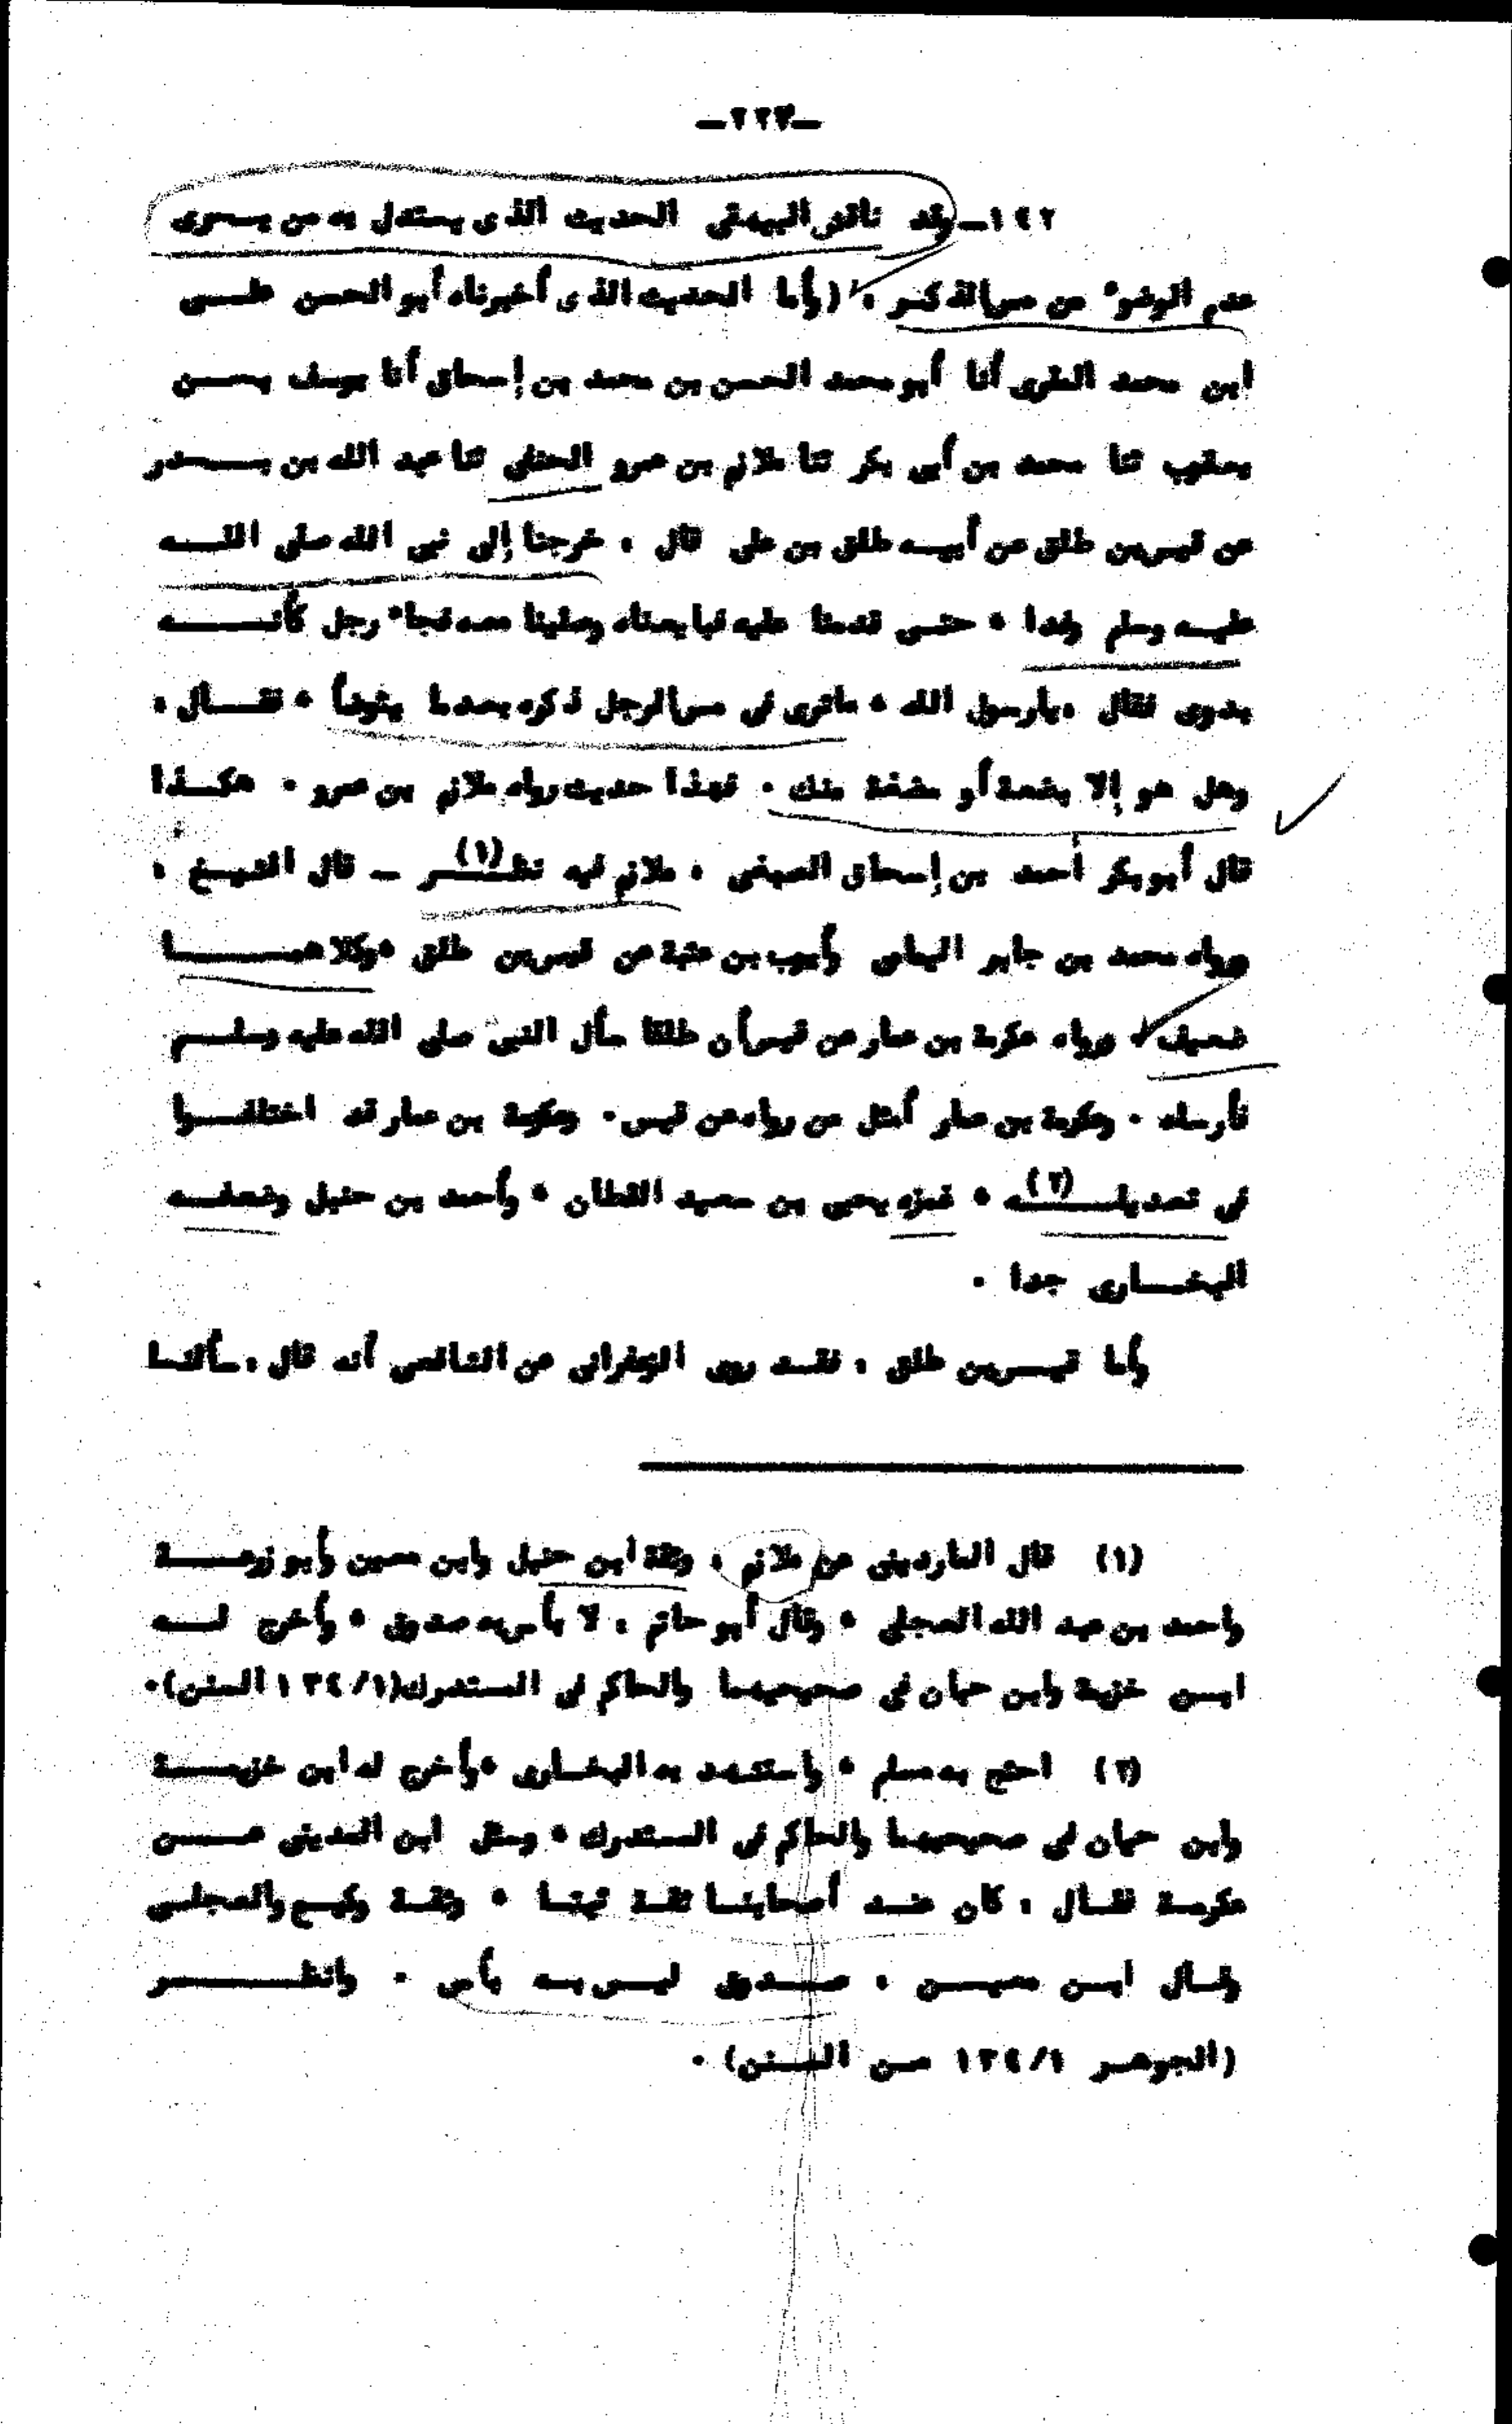 -٢٢٣-
١٤٢- وقد ناقش البيهقي الحديث الذى يستدل به من يـــرى
عدم الوضوء من مس الذكــر : (وأما الحديث الذى أخبرناه أبو الحسن علـــى
ابن محمد المقرى أنا أبو محمد الحسن بن محمد بن إسحاق أنا يوسف بـــن
يعقوب ثنا محمد بن أبى بكر ثنا ملازم بن عمرو الحنفى ثنا عبد الله بن بـــدر
عن قيس بن طلق عن أبيـه طلق بن على قال : خرجنا إلى نبى الله صلى اللـــه
عليـه وسلم وفدا ، حتـى قدمنا عليه فبايعناه وصلينا معه فجاء رجل كأنـــه
بدوى فقال : يارسول الله ، ماترى في مس الرجل ذكره بعدما يتوضأ ، فقـــال :
وهل هو إلا بضعة أو مضغة منك . فهذا حديث رواه ملازم بن عمرو . هكـــذا
قال أبو بكر أحمد بن إسحاق الصبغى : ملازم فيه نظـــر (١) - قال الشيـخ :
ورواه محمد بن جابر اليمامى وأيوب بن عتبة عن قيس بن طلق ، وكلاهمـــا
ضعيف ، ورواه عكرمة بن عمار عن قيس أن طلقا سأل النبى صلى الله عليه وسلـــم
فأرسله . وعكرمة بن عمار أمثل من رواه عن قيس . وعكرمة بن عمار قد اختلفـــوا
في تعديلـــه (٢) ، غمزه يحيى بن سعيد القطان ، وأحمد بن حنبل وضعفـــه
البخـــارى جدا .
وأما قيـــس بن طلق ، فقـد روى الزعفرانى عن الشافعى أنه قال : سألنـــا
(١) قال الماردينى عن ملازم : وثقة ابن حنبل وابن معين وأبو زرعـــة
واحمد بن عبد الله العجلى ، وقال أبو حاتم : لا بأس به صدوق ، وأخرج لـــه
ابـن خزيمة وابن حبان في صحيحيهما والحاكم في المستدرك (١٣٤/١ السنن) .
(٢) احتج به مسلم ، واستشهد به البخـارى ، وأخرج له ابن خزيمـــة
وابن حبان في صحيحيهما والحاكم في المستدرك ، وسئل ابن المدينى عـــن
عكرمـة فقـال : كان عنـد أصحابنـا ثقـة ثبتـا ، وثقـة وكيـع والعجلـى
وقـال ابـن معيـن : صـــدوق ليـس بـه بأس . وانظـــر
(الجوهـر ١٣٤/١ مـن السـنن) .